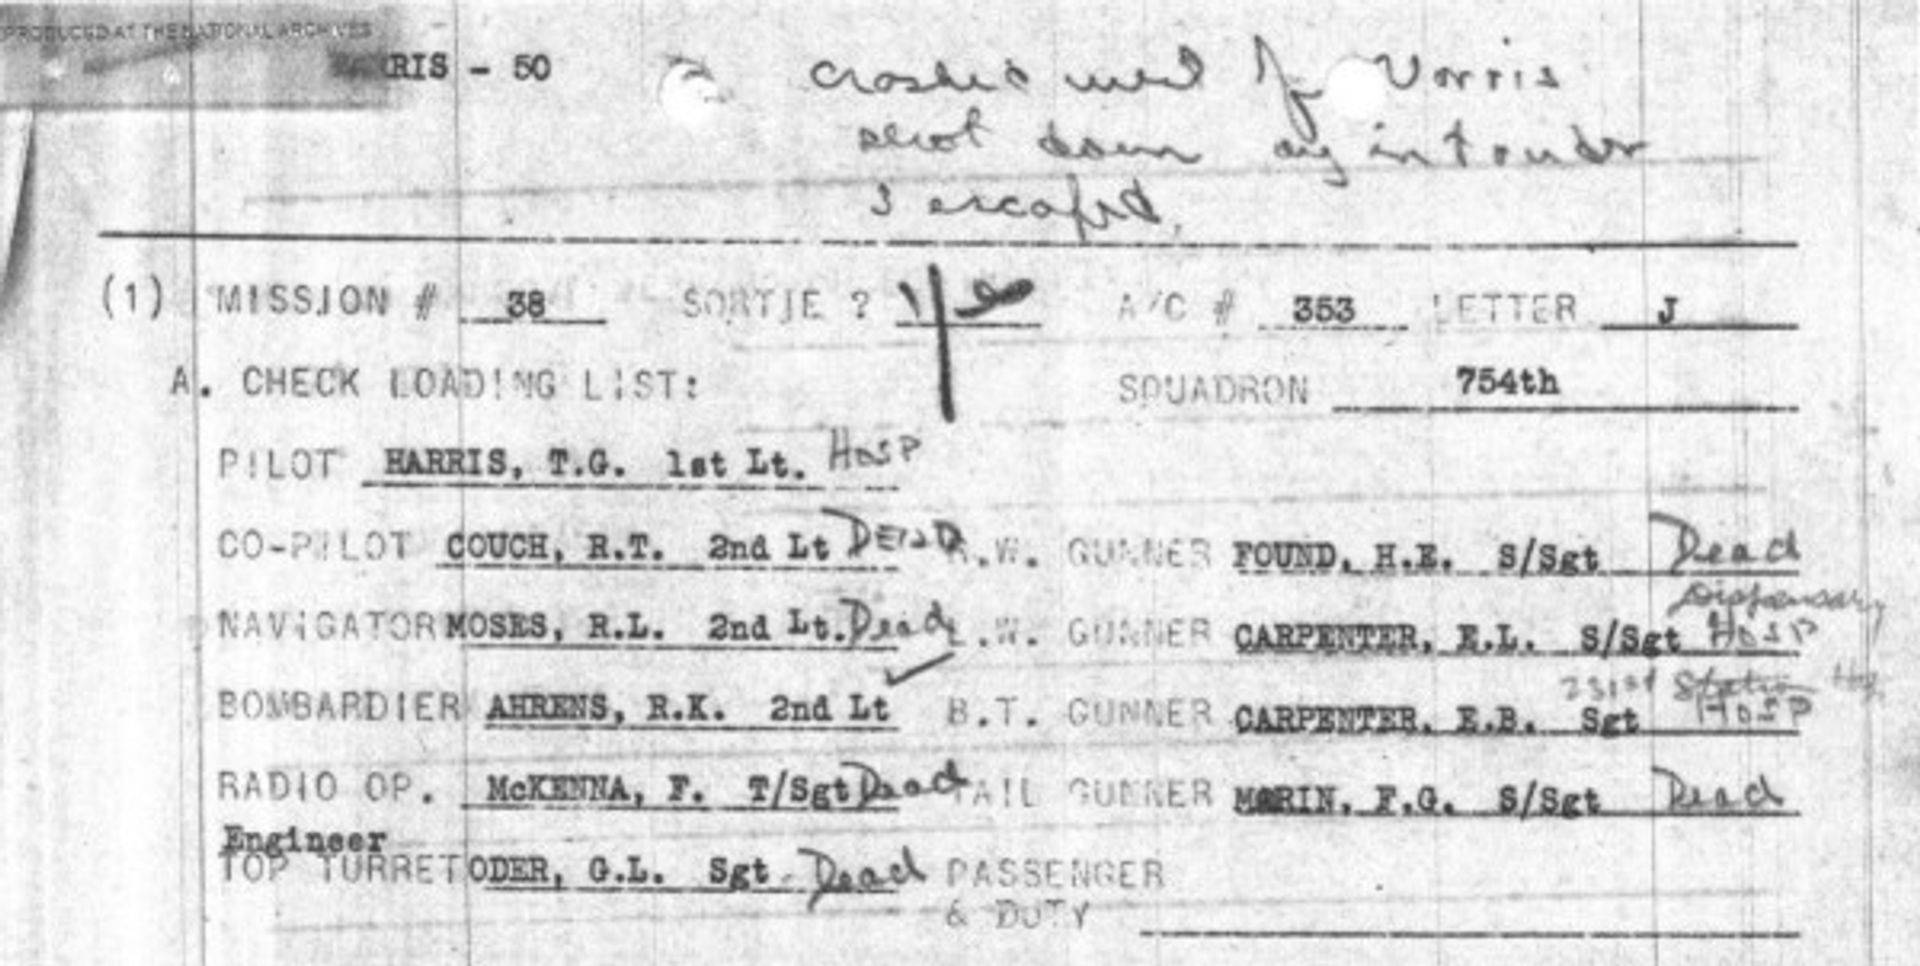 PRODUCED AT THE NATIONAL ARCHIVES
RIS - 50
crashed
shot down by intruder
3 escaped.
(1) MISSION # 38 SORTIE ? A/C # 353 LETTER J
A. CHECK LOADING LIST: SQUADRON 754th
PILOT HARRIS, T.G. 1st Lt. HOSP
CO-PILOT COUCH, R.T. 2nd Lt DEAD R.W. GUNNER FOUND, H.E. S/Sgt Dead
Dispensary
NAVIGATOR MOSES, R.L. 2nd Lt. Dead L.W. GUNNER CARPENTER, E.L. S/Sgt HOSP
231st Station
BOMBARDIER AHRENS, R.K. 2nd Lt B.T. GUNNER CARPENTER, E.B. Sgt HOSP
RADIO OP. McKENNA, F. T/Sgt Dead TAIL GUNNER MORIN, F.G. S/Sgt Dead
Engineer
TOP TURRET ODER, G.L. Sgt Dead PASSENGER
& DUTY